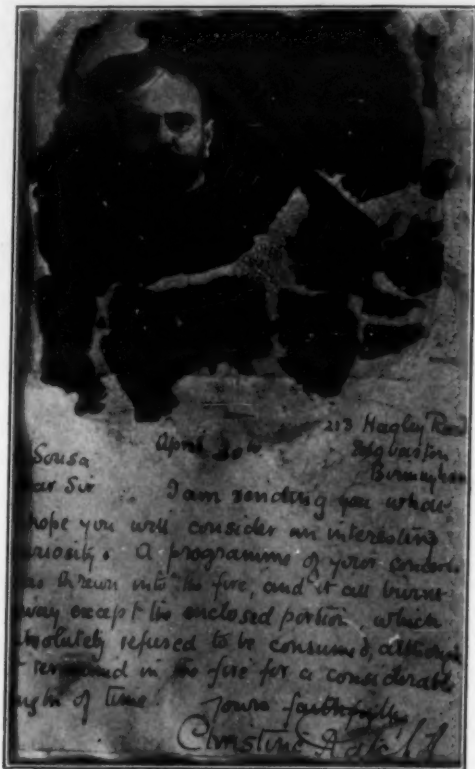 213 Hagley Road
April 30th Edgbaston
Sousa Birmingham
ar Sir I am sending you what
hope you will consider an interesting
uriosity. A programme of your concert
as thrown into the fire, and it all burnt
way except the enclosed portion, which
bsolutely refused to be consumed, although
t remained in the fire for a considerable
ngth of time.
Yours faithfully
Christine